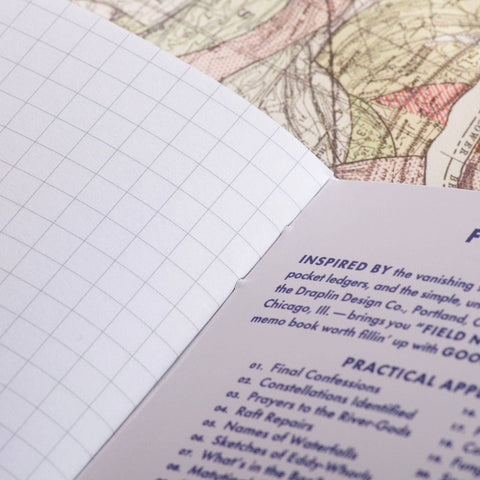 INSPIRED BY the vanishing
pocket ledgers, and the simple,
the Draplin Design Co., Portland,
Chicago, Ill. — brings you "FIELD
memo book worth fillin' up with
PRACTICAL
01. Final Confessions
02. Constellations Identified
03. Prayers to the River-Gods
04. Raft Repairs
05. Names of Waterfalls
06. Sketches of Eddy-Whorls
07. What's in the
08.